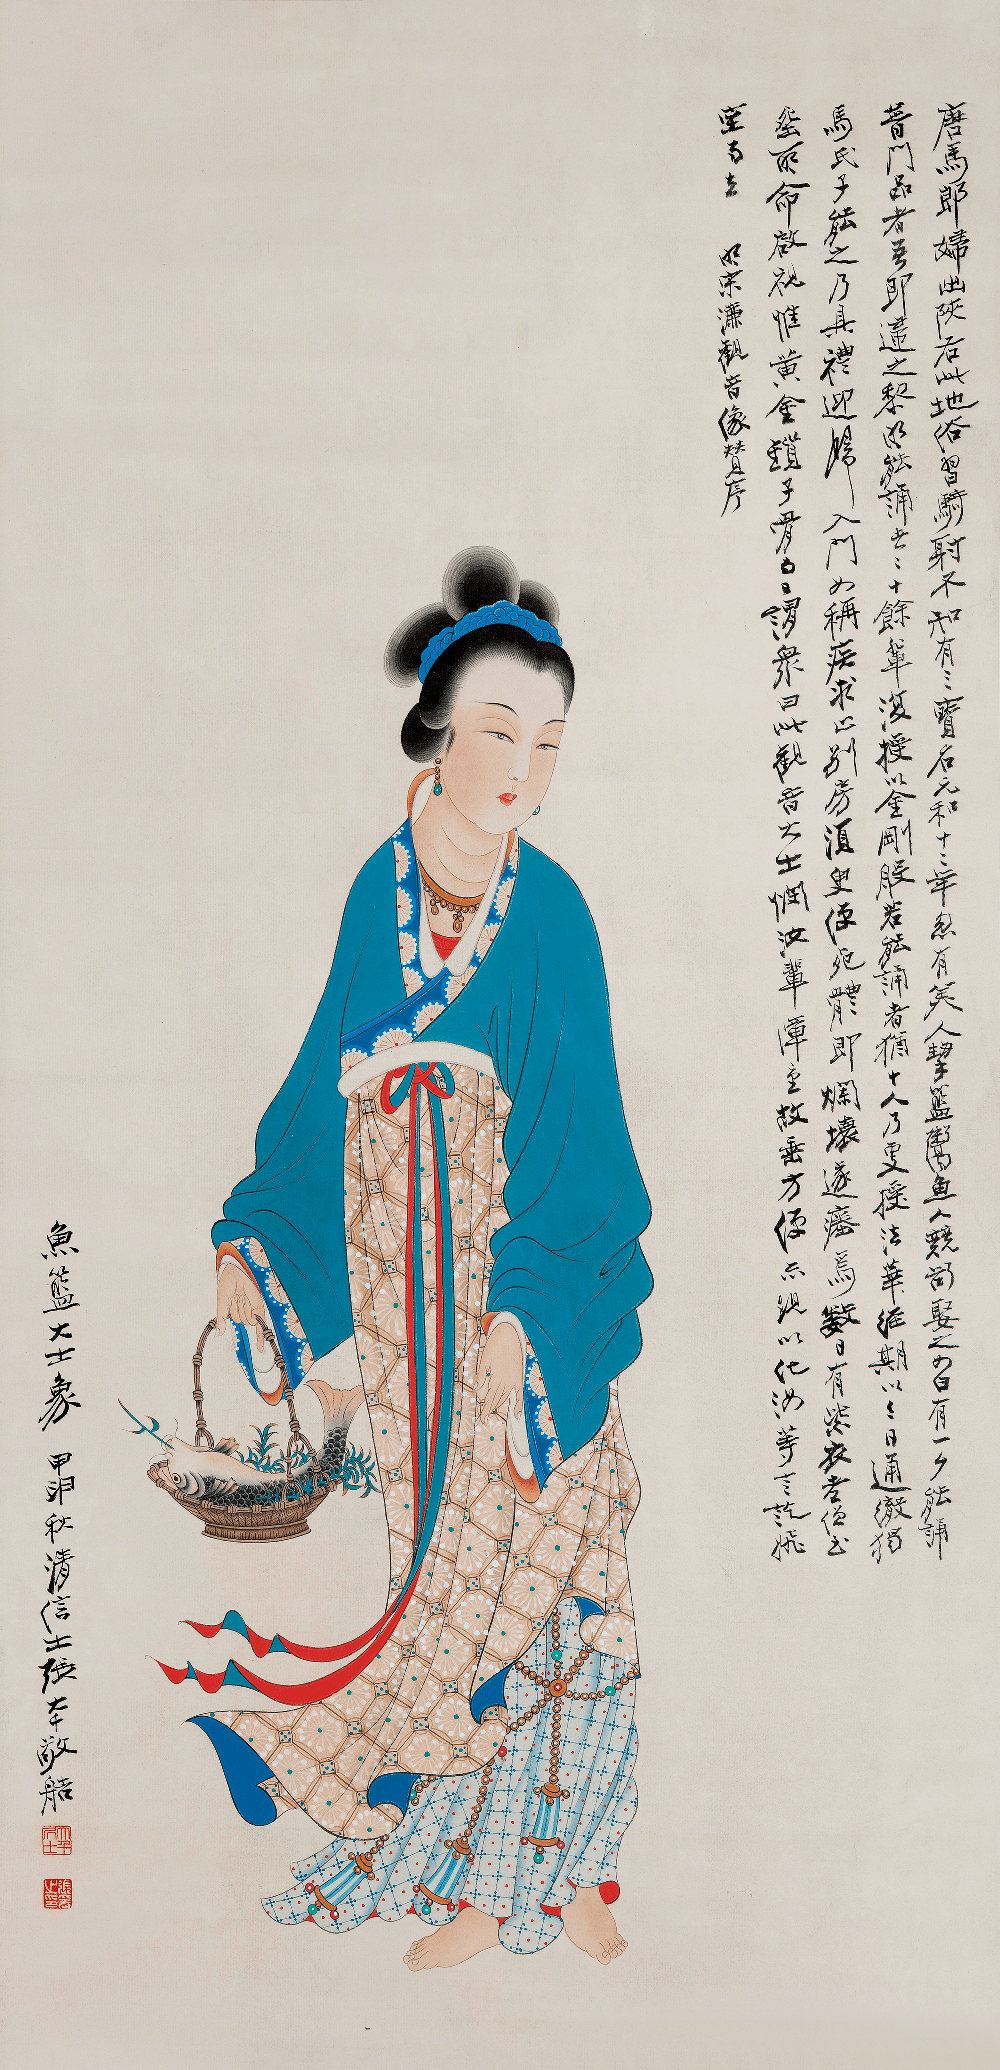 唐馬郎婦出陝右此地俗習騎射不知有三寶名元和十二年忽有美人挈籃鬻魚人競娶之女曰有一夕能誦
普門品者吾即適之黎明能誦者二十餘輩復授以金剛般若能誦者猶十人乃更授法華經期以三日通徹獨
馬氏子能之乃具禮迎歸入門女稱疾求止別房須臾便死體即爛壞遂瘞焉數日有紫衣老僧至
塟所命啟視惟黃金鎖子骨而已謂眾曰此觀音大士憫汝輩障重故垂方便示現以化汝等言訖飛
空而去 明宋濂觀音像贊序
魚籃大士象 甲申秋清信士張大千敬艁
大千居士
張爰之印